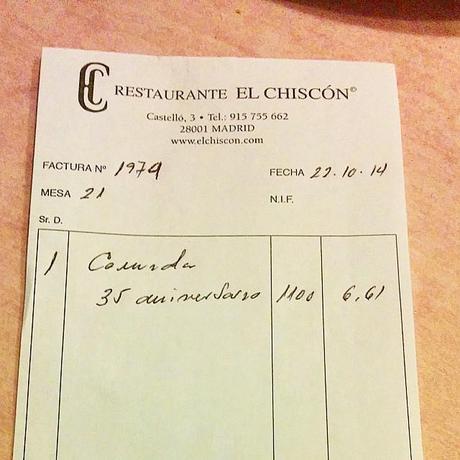 HC RESTAURANTE EL CHISCÓN©
Castelló, 3 • Tel.: 915 755 662
28001 MADRID
www.elchiscon.com
FACTURA Nº 1979 FECHA 22.10.14
MESA 21 N.I.F.
Sr. D.
1 Comida
35 aniversario 1100 6,61